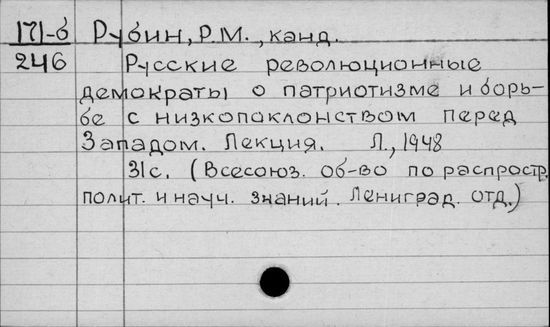 171-б Рубин, Р.М., канд.
246 Русские революционные
демократы о патриотизме и борь-
бе с низкопоклонством перед
Западом. Лекция. Л., 1948
31с. (Всесоюз. об-во по распростр.
полит. и науч. знаний. Ленинград. отд.)